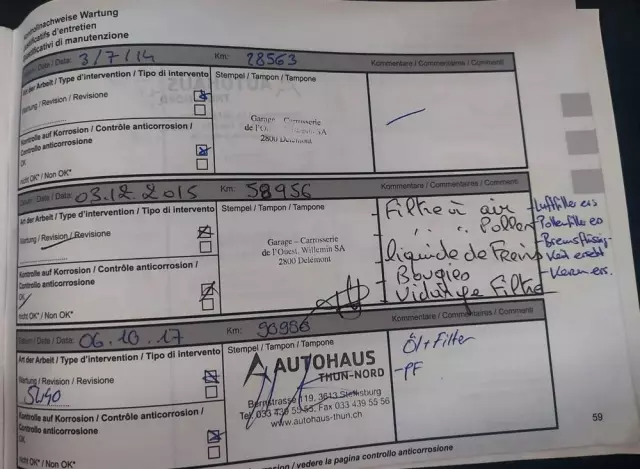 Kontrollnachweise Wartung
Justificatifs d'entretien
Giustificativi di manutenzione
Datum / Date / Data: 3/7/14 Km: 28563 Kommentare / Commentaires / Commenti
Art der Arbeit / Type d'intervention / Tipo di intervento
Stempel / Tampon / Tampone
Wartung / Revision / Revisione
Garage - Carrosserie
de l'Ouest, Willemin SA
2800 Delémont
Kontrolle auf Korrosion / Contrôle anticorrosion /
Controllo anticorrosione
OK
nicht OK* / Non OK*
Datum / Date / Data: 03.12.2015 Km: 58956 Kommentare / Commentaires / Commenti
Art der Arbeit / Type d'intervention / Tipo di intervento
Stempel / Tampon / Tampone
Wartung / Revision / Revisione
Garage - Carrosserie
de l'Ouest, Willemin SA
2800 Delémont
- Filtre à air
- " " Pollen
- liquide de Freins
- Bougies
- Vidange Filtre
- Luftfilter ers
- Pollenfilter es
- Bremsflüssig
Kontrolle auf Korrosion / Contrôle anticorrosion /
Controllo anticorrosione
OK
nicht OK* / Non OK*
Datum / Date / Data: 06.10.17 Km: 90986 Kommentare / Commentaires / Commenti
Art der Arbeit / Type d'intervention / Tipo di intervento
Stempel / Tampon / Tampone
Wartung / Revision / Revisione
AUTOHAUS
THUN-NORD
Bernstrasse 119, 3613 Steffisburg
Tel. 033 439 55 55, Fax 033 439 55 56
www.autohaus-thun.ch
Öl + Filter
- PF
Kontrolle auf Korrosion / Contrôle anticorrosion /
Controllo anticorrosione
OK
nicht OK* / Non OK*
59
/ vedere la pagina controllo anticorrosione